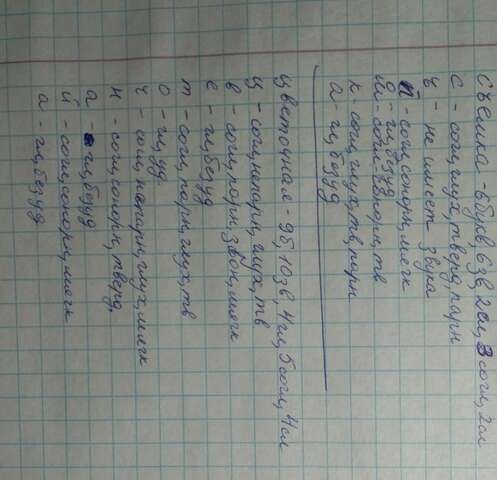 съёмка - 6 букв, 6 зв, 2 гл, 3 согл, 2 сл
с - согл, глух, тверд, парн
ъ - не имеет звука
й - согл, сонорн, мягк
о - гл, уд
м - согл, сонорн, тв
к - согл, глух, тв, парн
а - гл, безуд
цветочная - 9б, 10зв, 4гл, 5согл, 4сл
ц - согл, непарн, глух, тв
в - согл, парн, звон, мягк
е - гл, безуд
т - согл, парн, глух, тв
о - гл, уд
ч - согл, непарн, глух, мягк
н - согл, сонорн, тверд,
а - гл, безуд
й - согл, сонорн, мягк
а - гл, безуд